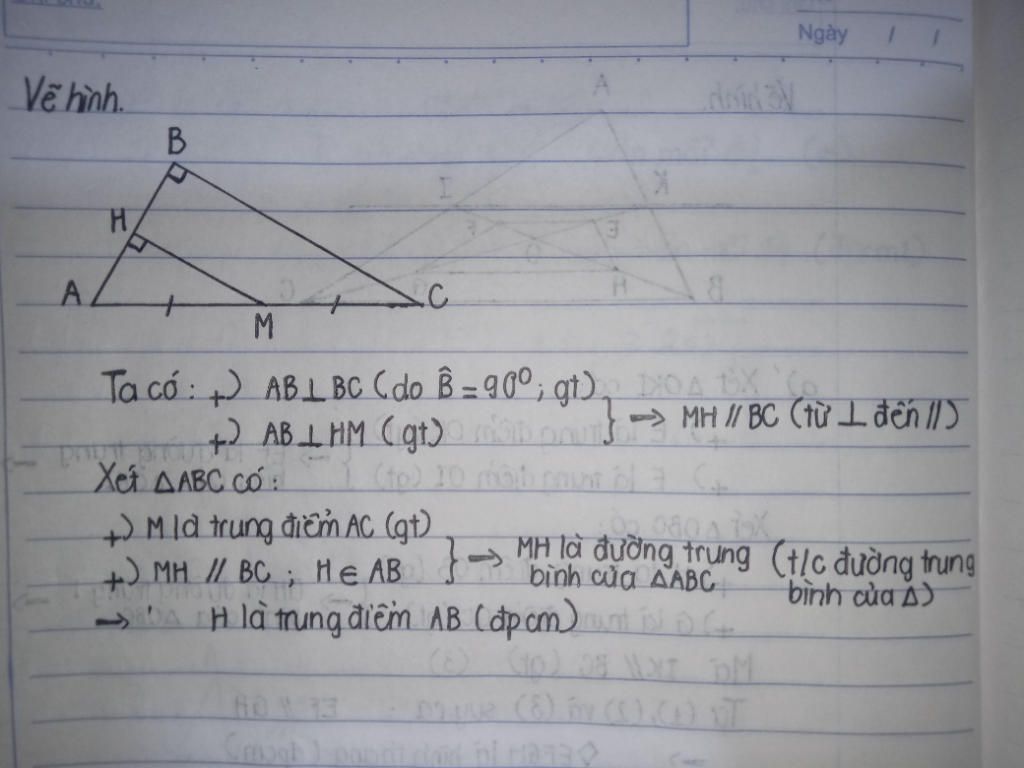 Ngày / /
Vẽ hình.
B
H
A
M
C
Ta có : +) AB ⊥ BC (do B̂ = 90⁰ ; gt)
+) AB ⊥ HM (gt)
} → MH // BC (từ ⊥ đến //)
Xét △ABC có :
+) M là trung điểm AC (gt)
+) MH // BC ; H ∈ AB
} → MH là đường trung bình của △ABC (t/c đường trung bình của △)
→ H là trung điểm AB (đpcm)